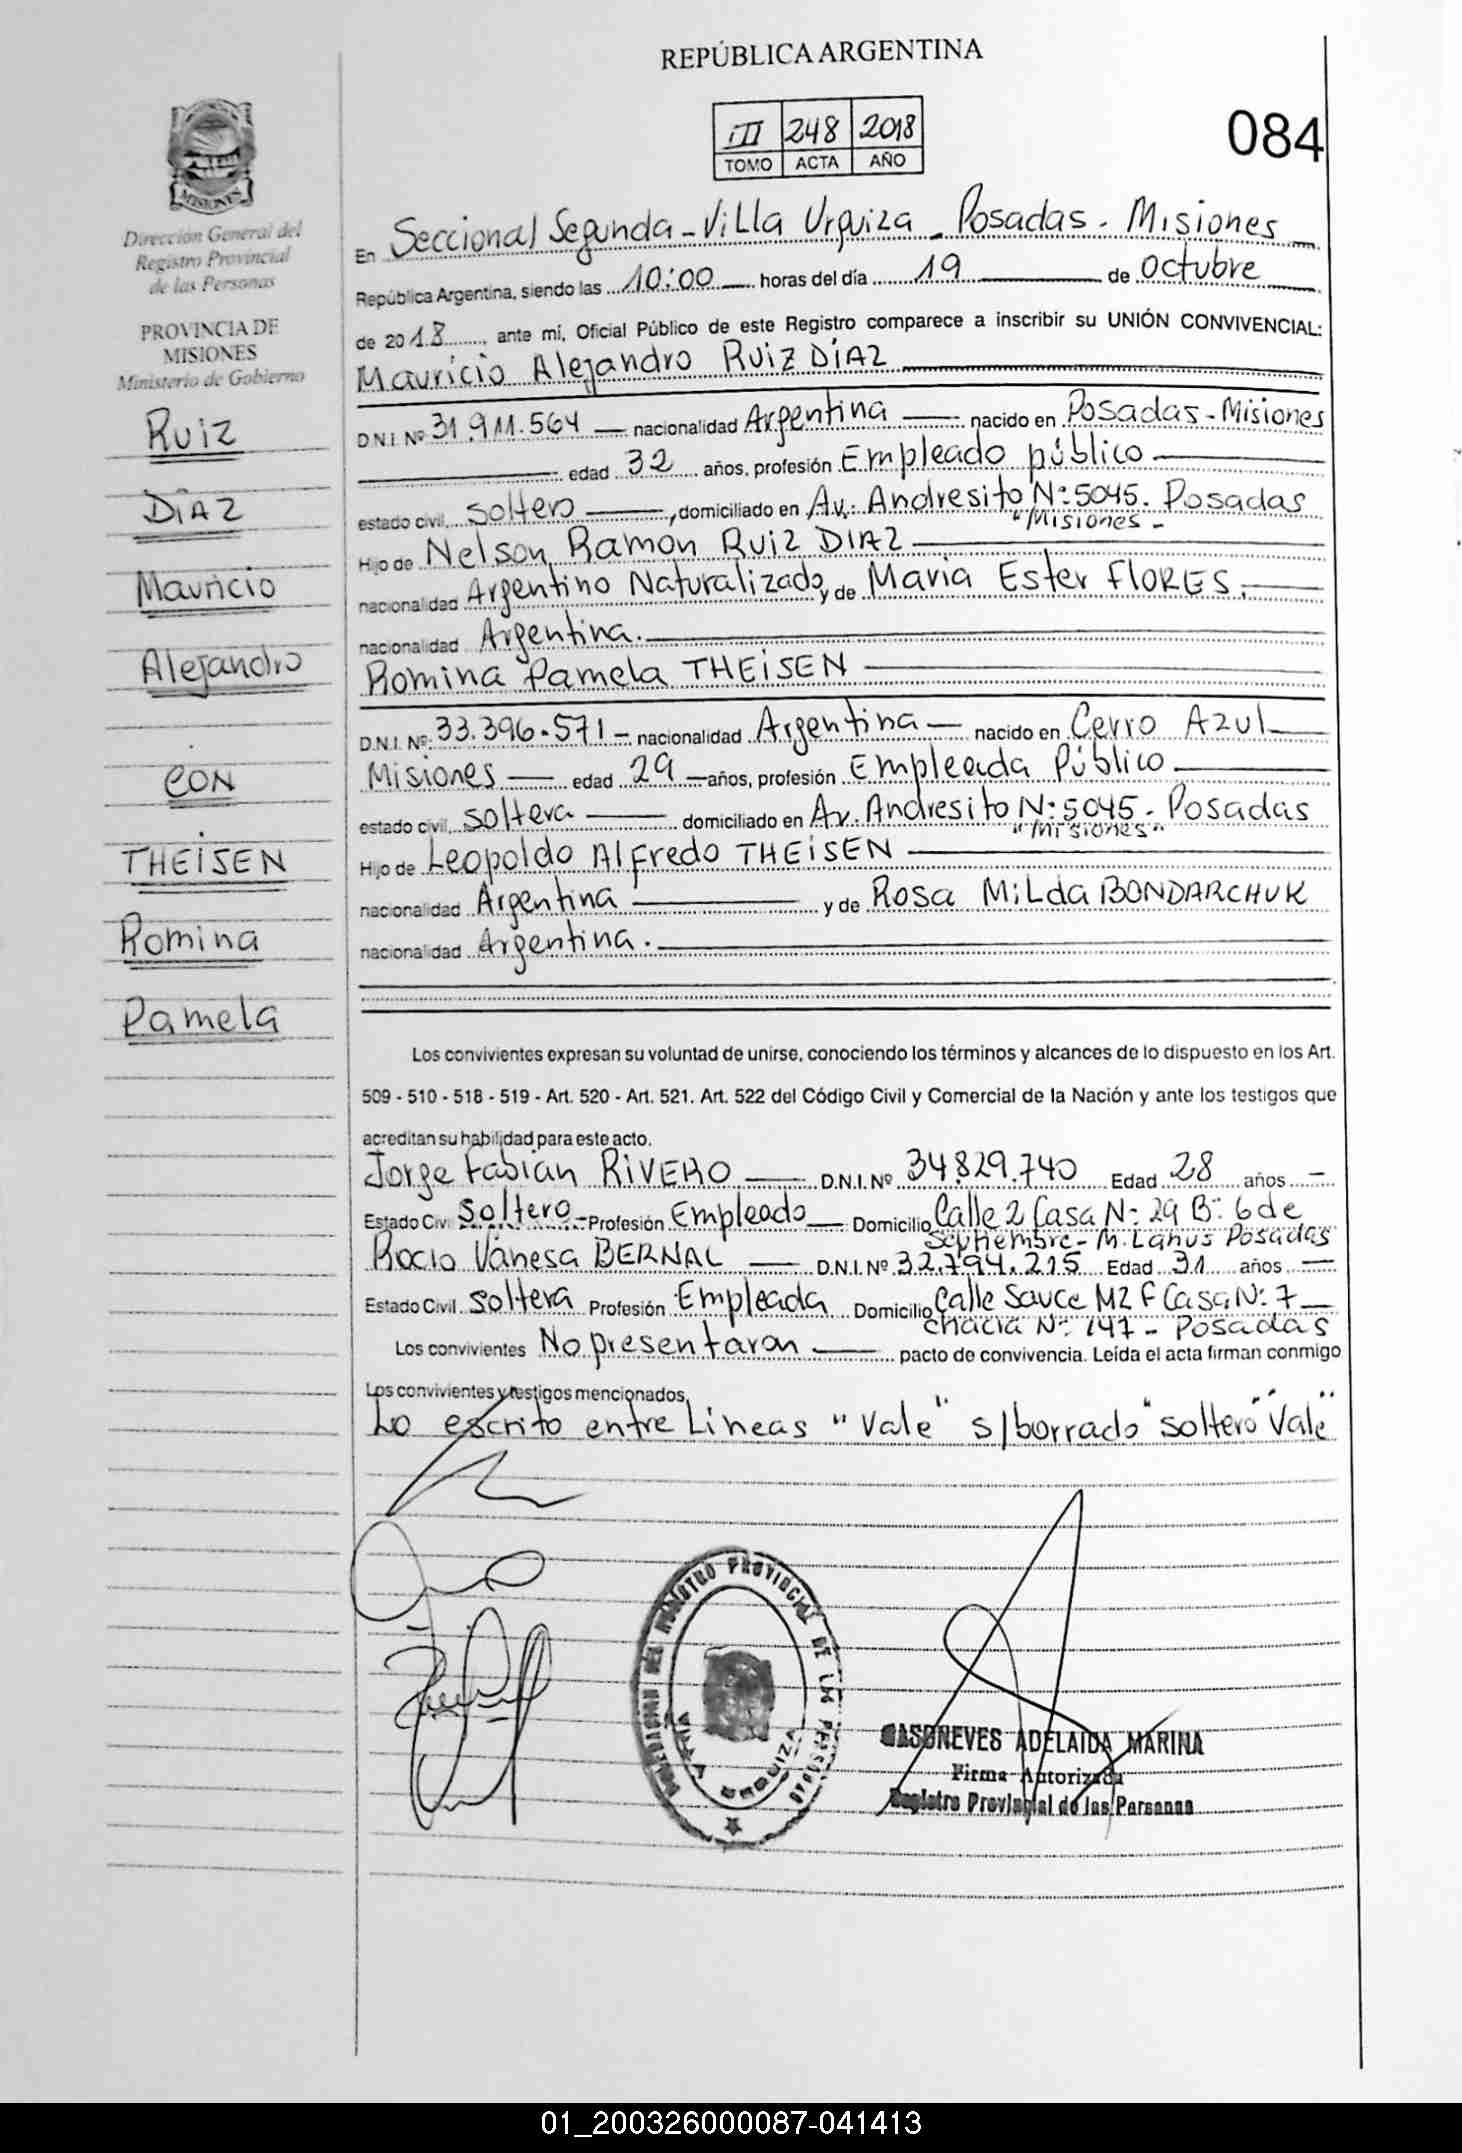 REPÚBLICA ARGENTINA
III 248 2018
TOMO ACTA AÑO
084
MISIONES
Dirección General del
Registro Provincial
de las Personas
PROVINCIA DE
MISIONES
Ministerio de Gobierno
Ruiz
DÍAZ
Mauricio
Alejandro
CON
THEISEN
Romina
Pamela
En Seccional Segunda - Villa Urquiza - Posadas - Misiones
República Argentina, siendo las 10:00 horas del día 19 de Octubre
de 2018, ante mí, Oficial Público de este Registro comparece a inscribir su UNIÓN CONVIVENCIAL:
Mauricio Alejandro RUIZ DÍAZ
D.N.I. Nº 31.911.564 nacionalidad Argentina nacido en Posadas - Misiones
edad 32 años, profesión Empleado público
estado civil soltero, domiciliado en Av. Andresito Nº 5045. Posadas
"Misiones -
Hijo de Nelson Ramon RUIZ DIAZ
nacionalidad Argentino Naturalizado y de Maria Ester FLORES,
nacionalidad Argentina.
Romina Pamela THEISEN
D.N.I. Nº: 33.396.571 - nacionalidad Argentina nacido en Cerro Azul
Misiones edad 29 años, profesión Empleada Público
estado civil, soltera domiciliado en Av. Andresito Nº: 5045 - Posadas
"Misiones"
Hijo de Leopoldo Alfredo THEISEN
nacionalidad Argentina y de Rosa Milda BONDARCHUK
nacionalidad Argentina.
Los convivientes expresan su voluntad de unirse, conociendo los términos y alcances de lo dispuesto en los Art.
509 - 510 - 518 - 519 - Art. 520 - Art. 521. Art. 522 del Código Civil y Comercial de la Nación y ante los testigos que
acreditan su habilidad para este acto.
Jorge Fabian RIVERO D.N.I. Nº 34.829.740 Edad 28 años
Estado Civ. Soltero - Profesión Empleado Domicilio Calle 2 Casa Nº 29 Bº: 6 de
Septiembre - M. Lanus Posadas
Rocio Vanesa BERNAL D.N.I. Nº 32.794.215 Edad 31 años
Estado Civil soltera Profesión Empleada Domicilio Calle Sauce MZ F Casa Nº: 7
chacra Nº: 147 - Posadas
Los convivientes No presentaron pacto de convivencia. Leída el acta firman conmigo
Los convivientes y testigos mencionados.
Lo escrito entre Lineas "Vale" s/borrado "soltero" Vale"
DELEGACION DEL REGISTRO PROVINCIAL DE LAS PERSONAS
VILLA URQUIZA
CASONEVES ADELAIDA MARINA
Firma Autorizada
Registro Provincial de las Personas
01_200326000087-041413